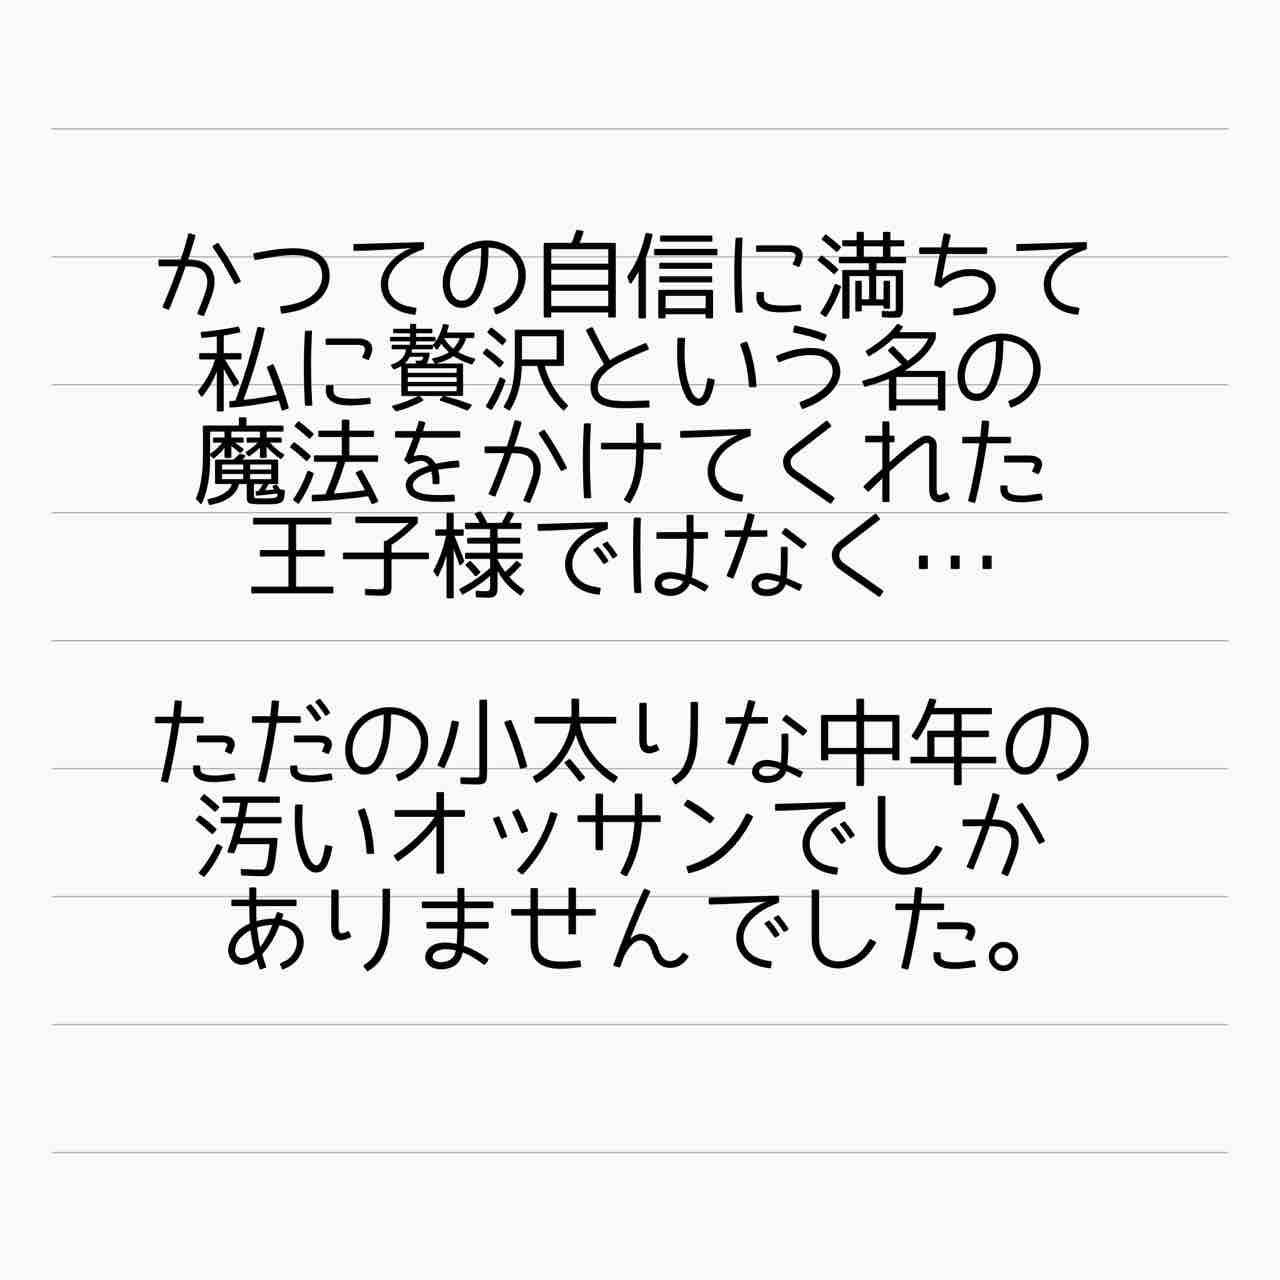 かつての自信に満ちて
私に贅沢という名の
魔法をかけてくれた
王子様ではなく…
ただの小太りな中年の
汚いオッサンでしか
ありませんでした。